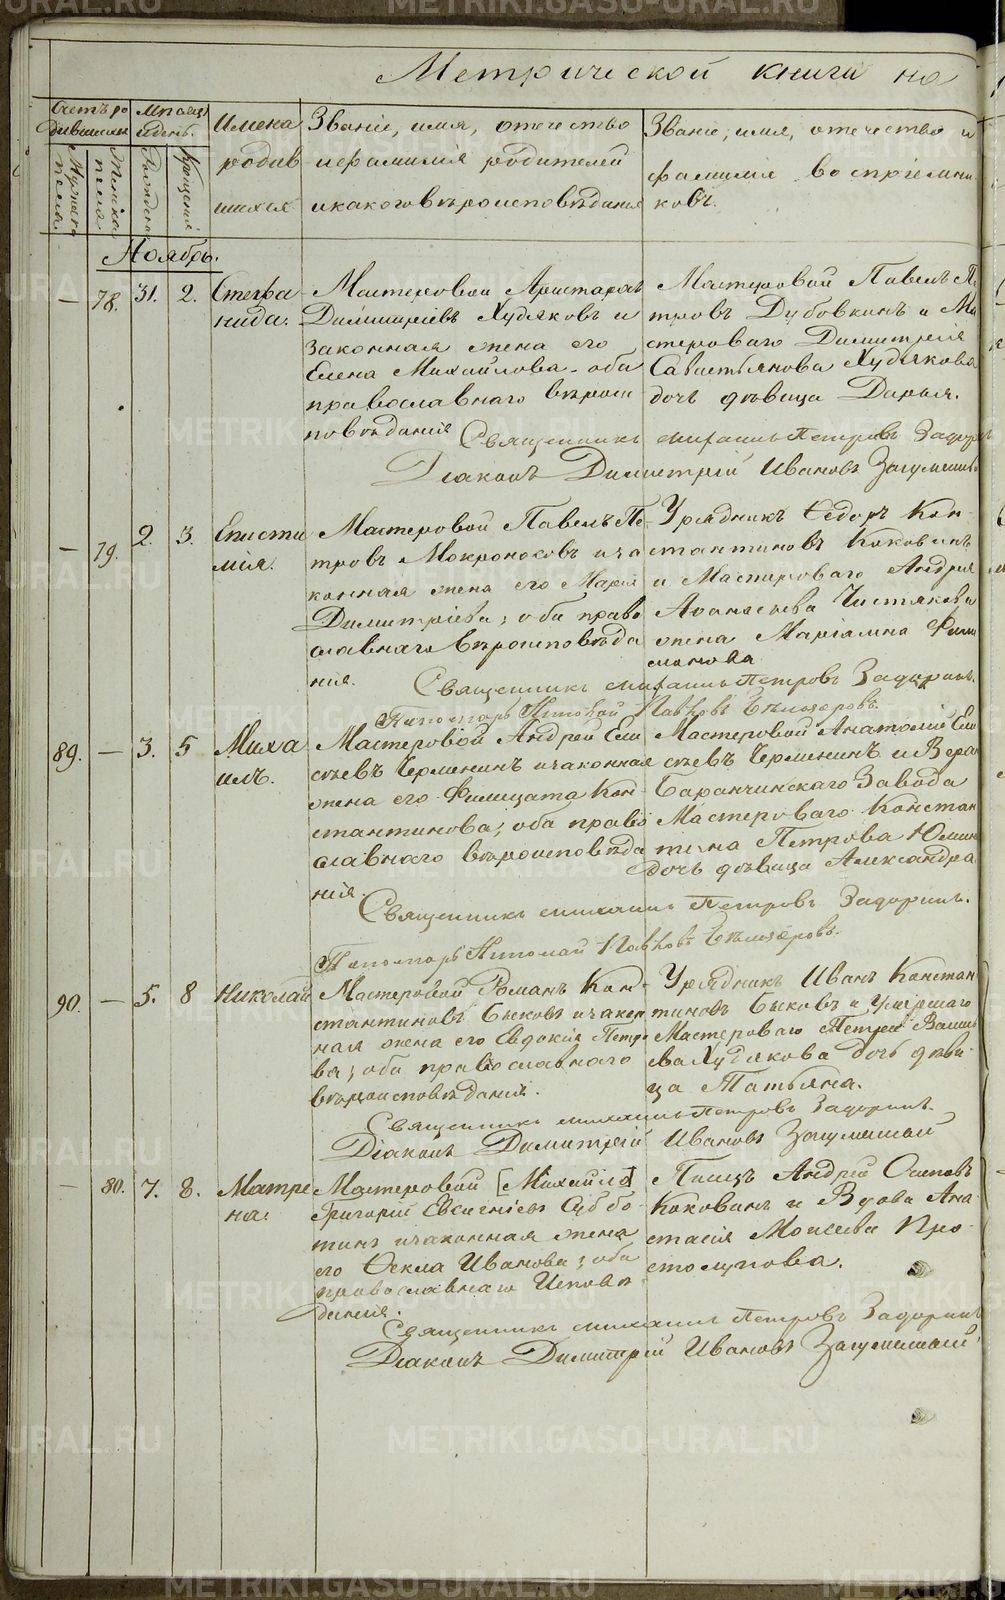 Метрической книги на
Счетъ ро
дившихся
Мужеска
пола.
Женска
пола
Месяцъ
и день.
Рожденія
Крещенія
Имена
родив
шихся
Званіе, имя, отечество
и фамилія родителей
и какого вероисповеданія
Званіе, имя, отечество и
фамилія воспріемни
ковъ.
Ноябрь.
— 78. 31. 2. Стефа
нида.
Мастеровой Аристархъ
Димитріевъ Худяковъ и
законная жена его
Елена Михайлова, оба
православнаго вероис
поведанія
Мастеровой Павелъ Пе
тровъ Дубовкинъ и Ма
стероваго Димитрія
Савастьянова Худякова
дочь девица Дарья.
Священникъ Михаилъ Петровъ Задоринъ
Діаконъ Димитрій Ивановъ
— 79. 2. 3. Еписти
мія.
Мастеровой Павелъ Пе
тровъ Мокроносовъ и за
конная жена его Марія
Димитріева, оба право
славнаго вероисповеда
нія.
Урядникъ Ѳедоръ Кон
стантиновъ Коковинъ
и Мастероваго Андрея
Аѳанасьева Чистякова
жена Маріамна Фили
монова
Священникъ Михаилъ Петровъ Задоринъ.
Пономарь Николай Павловъ
89. — 3. 5 Миха
илъ.
Мастеровой Андрей Ели
сеевъ Черменинъ и законная
жена его Филицата Кон
стантинова, оба право
славнаго вероисповеда
нія.
Мастеровой Анатолій Ели
сеевъ Черменинъ и Верх
Баранчинскаго Завода
Мастероваго Констан
тина Петрова Юдина
дочь девица Александра
Священникъ Михаилъ Петровъ Задоринъ.
Пономарь Николай Павловъ
90. — 5. 8 Николай
Мастеровой Романъ Кон
стантиновъ Быковъ и закон
ная жена его Евдокія Петро
ва, оба православнаго
вероисповеданія.
Урядникъ Иванъ Констан
тиновъ Быковъ и Умершаго
Мастероваго Петра Василь
ева Худякова дочь деви
ца Татьяна.
Священникъ Михаилъ Петровъ Задоринъ.
Діаконъ Димитрій Ивановъ
— 80. 7. 8. Матре
на.
Мастеровой [Михайло]
Григорій Евсигніевъ Суббо
тинъ и законная жена
его Ѳекла Иванова, оба
православнаго Испове
данія.
Писецъ Андрей Осиповъ
Коковинъ и Вдова Ана
стасія Моисеева Про
столупова.
Священникъ Михаилъ Петровъ Задоринъ
Діаконъ Димитрій Ивановъ
METRIKI.GASO-URAL.RU